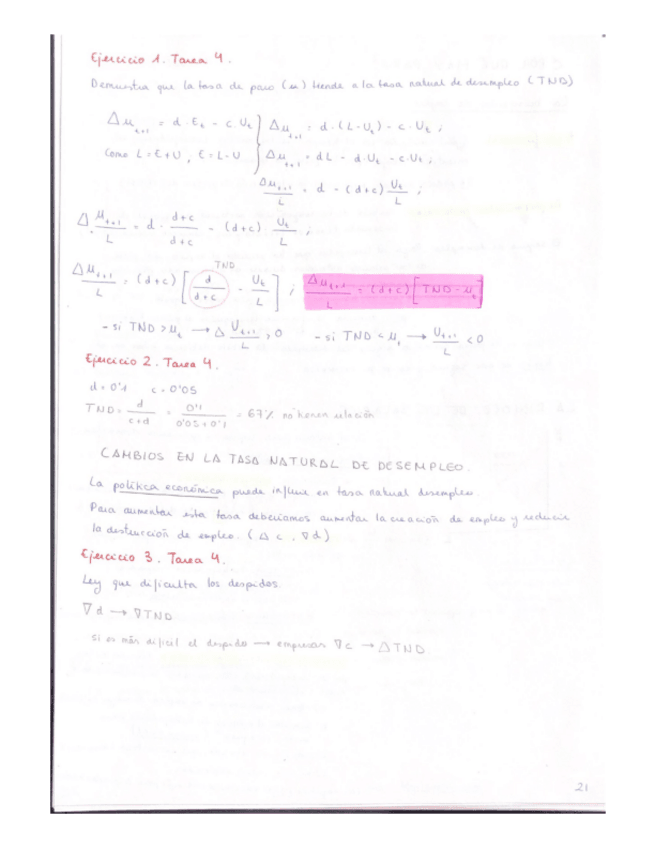 Ejercicio 1. Tarea 4.
Demuestra que la tasa de paro (u) tiende a la tasa natural de desempleo (TND)
Δu_{t+1} = d · E_t - c · U_t } Δu_{t+1} = d · (L-U_t) - c · U_t ;
Como L = E+U , E = L-U } Δu_{t+1} = dL - d·U_t - c·U_t ;
Δu_{t+1}/L = d - (d+c) U_t/L ;
Δ u_{t+1}/L = d · (d+c)/(d+c) - (d+c) · U_t/L ;
TND
Δu_{t+1}/L = (d+c) [ d/(d+c) - U_t/L ] ; Δu_{t+1}/L = (d+c) [ TND - u_t ]
- si TND > u_t → Δ U_{t+1}/L > 0 - si TND < u_t → U_{t+1}/L < 0
Ejercicio 2. Tarea 4.
d = 0'1 c = 0'05
TND = d/(c+d) = 0'1/(0'05+0'1) = 67% no tienen relación
CAMBIOS EN LA TASA NATURAL DE DESEMPLEO.
La política económica puede influir en tasa natural desempleo.
Para aumentar esta tasa deberíamos aumentar la creación de empleo y reducir
la destrucción de empleo. (Δ c , ∇ d)
Ejercicio 3. Tarea 4.
Ley que dificulta los despidos
∇ d → ∇ TND
si es más difícil el despido → empresas ∇ c → Δ TND.
21